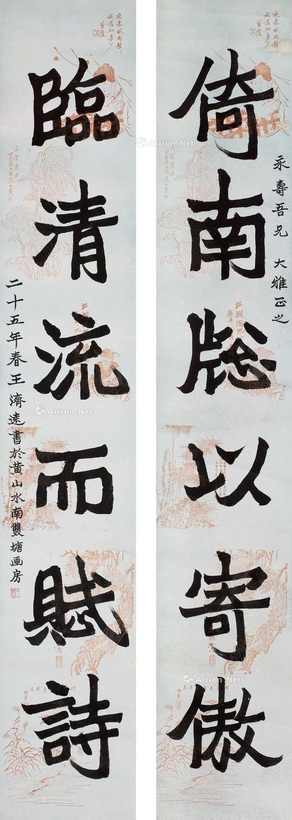 永壽吾兄 大雅正之
倚南牕以寄傲
臨清流而賦詩
二十五年春王濟遠書於黃山水南雙塘画房